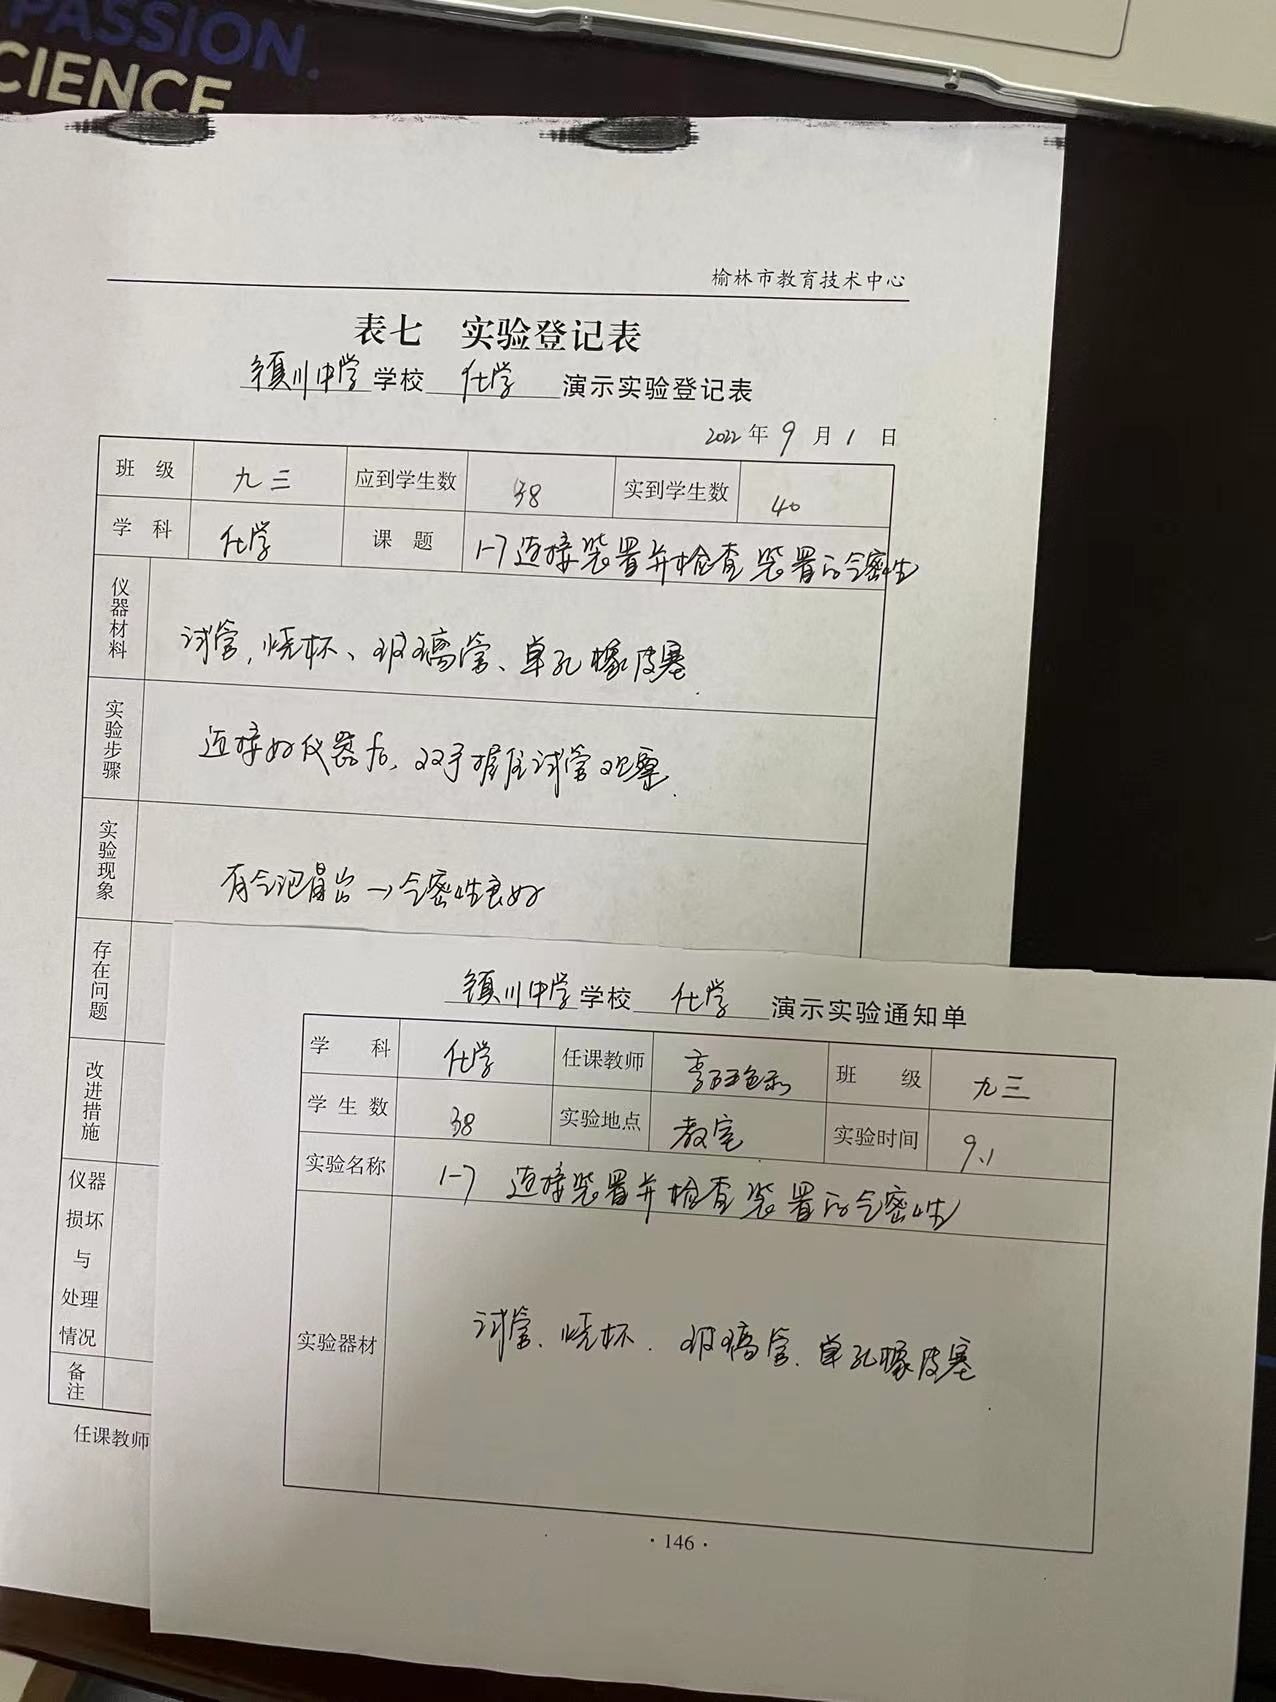 PASSION.
CIENCE
榆林市教育技术中心
表七 实验登记表
镇川中学学校 化学 演示实验登记表
2022年9月1日
班级 九三 应到学生数 38 实到学生数 40
学科 化学 课题 1-7连接装置并检查装置的气密性
仪器材料 试管、烧杯、玻璃管、单孔橡皮塞
实验步骤 连接好仪器后,双手握住试管观察.
实验现象 有气泡冒出→气密性良好
存在问题
改进措施
仪器损坏与处理情况
备注
任课教师
镇川中学学校 化学 演示实验通知单
学科 化学 任课教师 班级 九三
学生数 38 实验地点 教室 实验时间 9.1
实验名称 1-7 连接装置并检查装置的气密性
实验器材 试管、烧杯、玻璃管、单孔橡皮塞
·146·